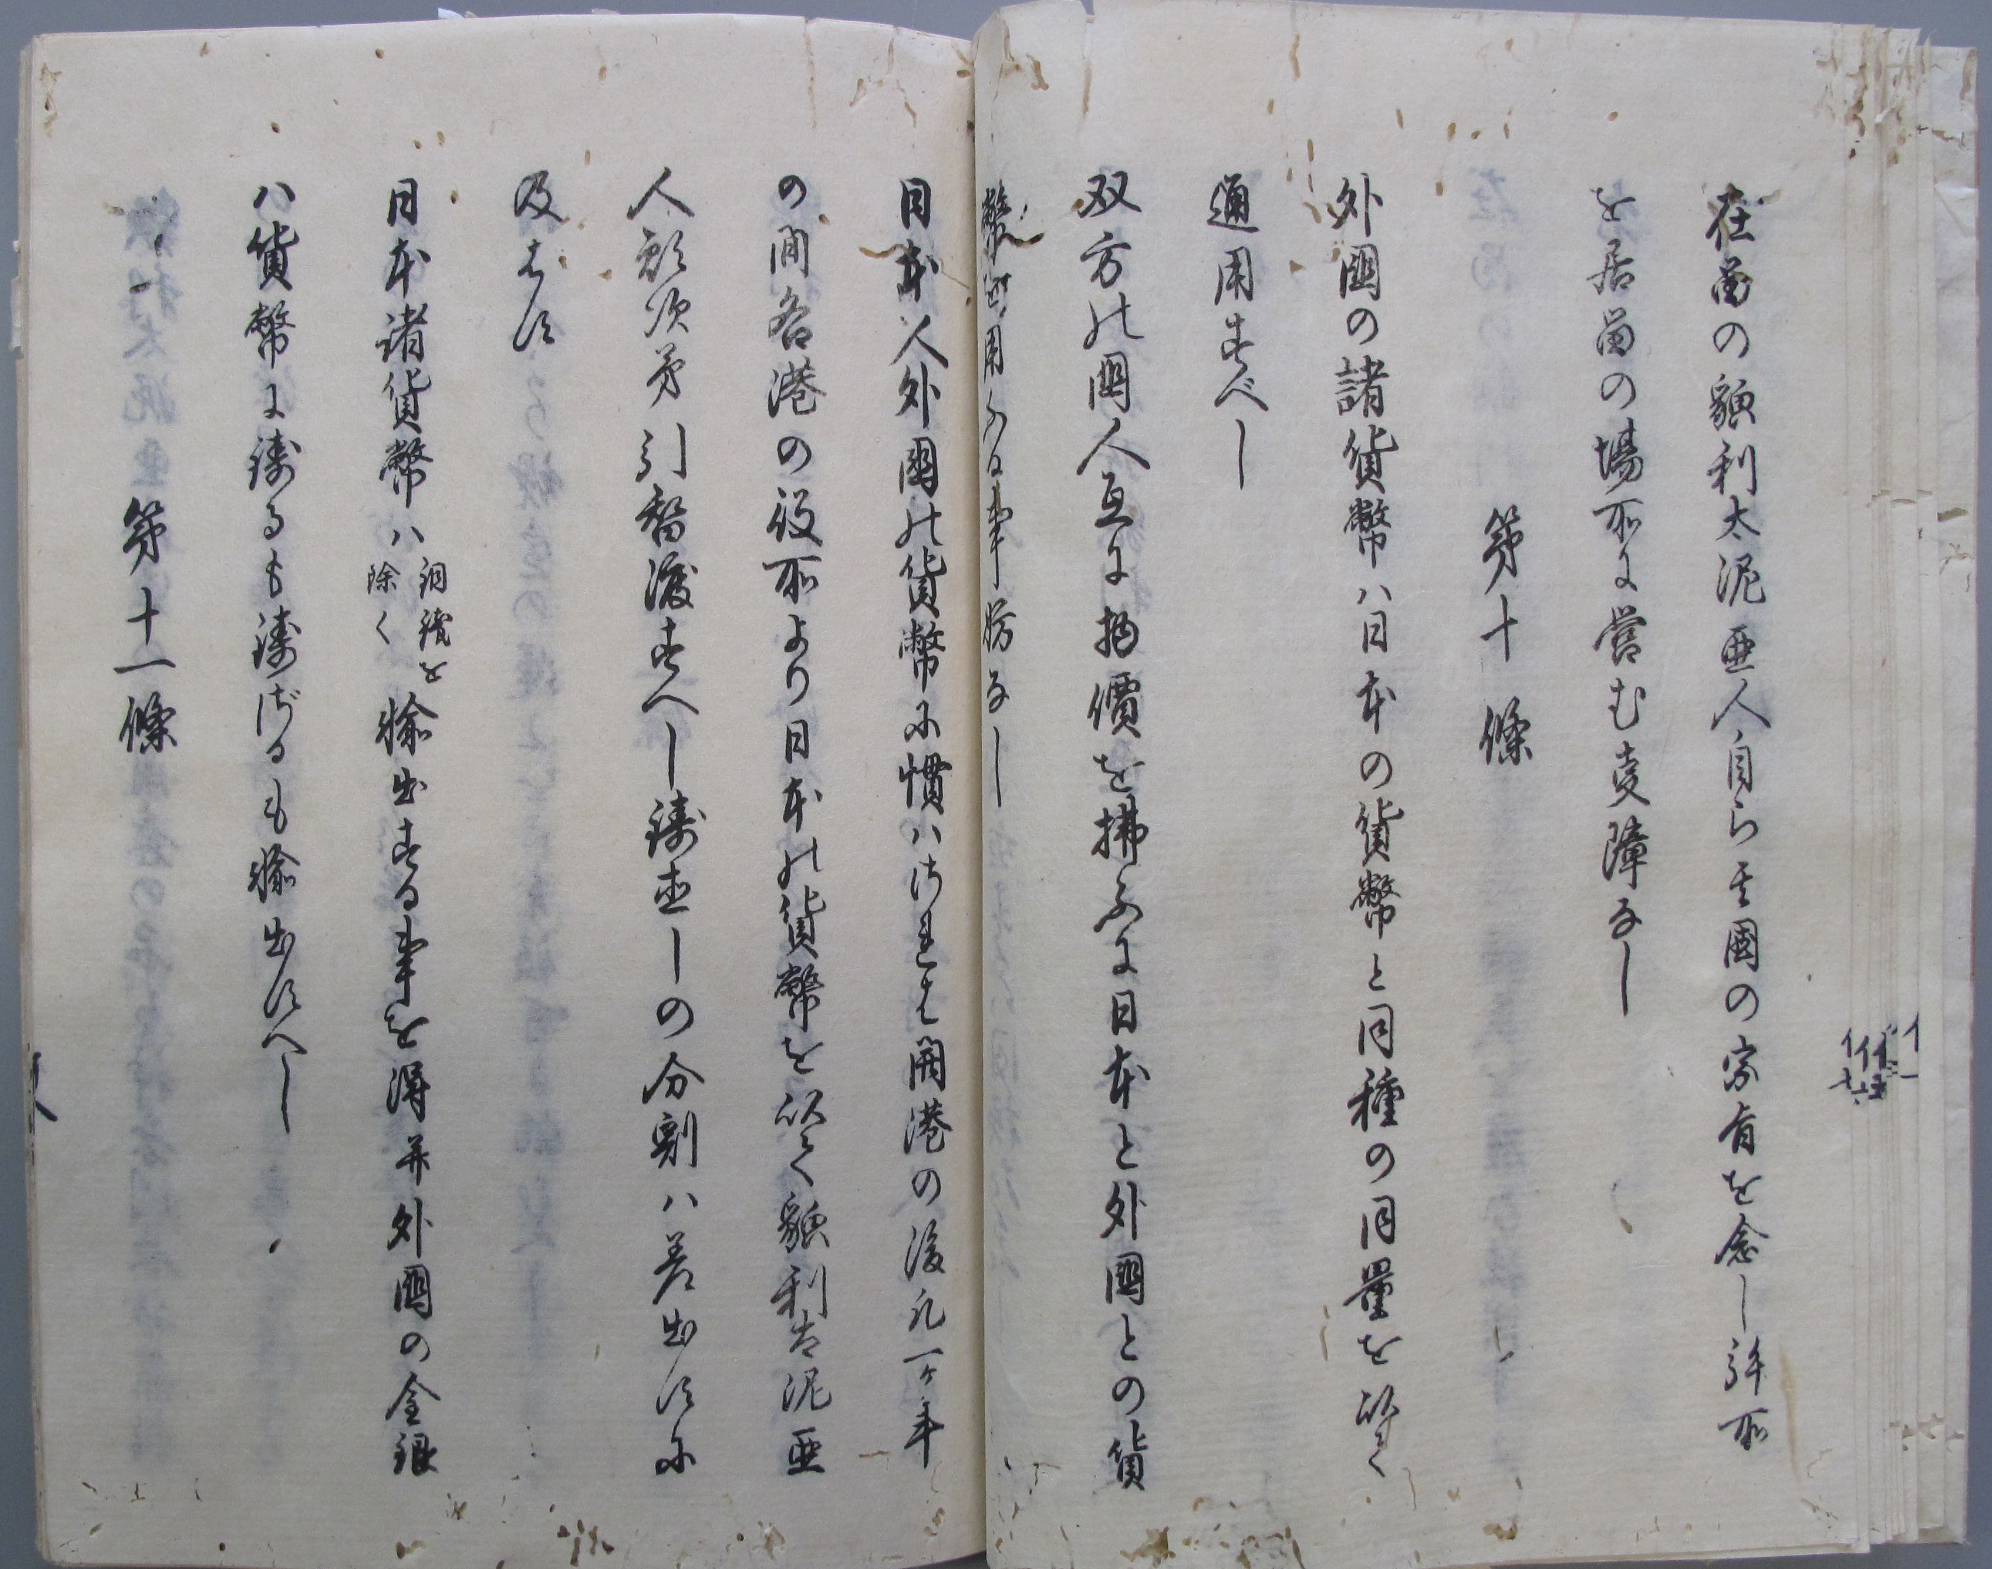 在留の貌利太泥亜人自ら其国の宗旨を念し拝所
を居留の場所に営む支障なし
第十條
外國の諸貨幣ハ日本の貨幣と同種の同量を以て
通用すべし
双方の國人互に物價を拂ふに日本と外國との貨
幣を用ふる事妨なし
日本人外國の貨幣に慣ハされは開港の後凡一ケ年
の間各港の役所より日本の貨幣を以て貌利太泥亜
人願次第引替渡すへし鋳直しの分割ハ差出すに
及はす
日本諸貨幣ハ銅銭を除く輸出する事を得并外國の金銀
ハ貨幣に鋳るも鋳さるも輸出すへし
第十一條